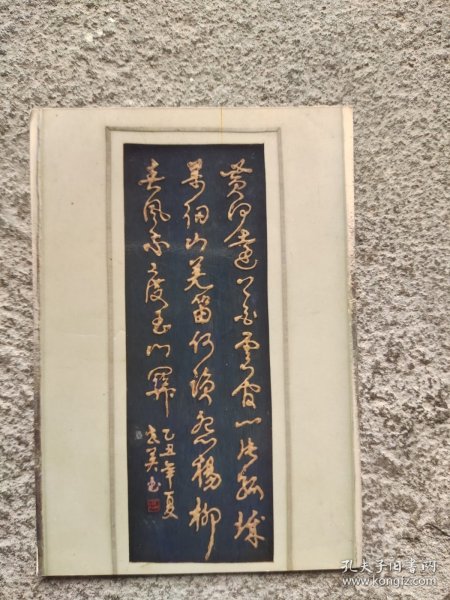 黄河遠上白雲間一片孤城
萬仞山羌笛何須怨楊柳
春風不度玉門關
乙丑年夏
孔夫子旧书网
www.kongfz.com